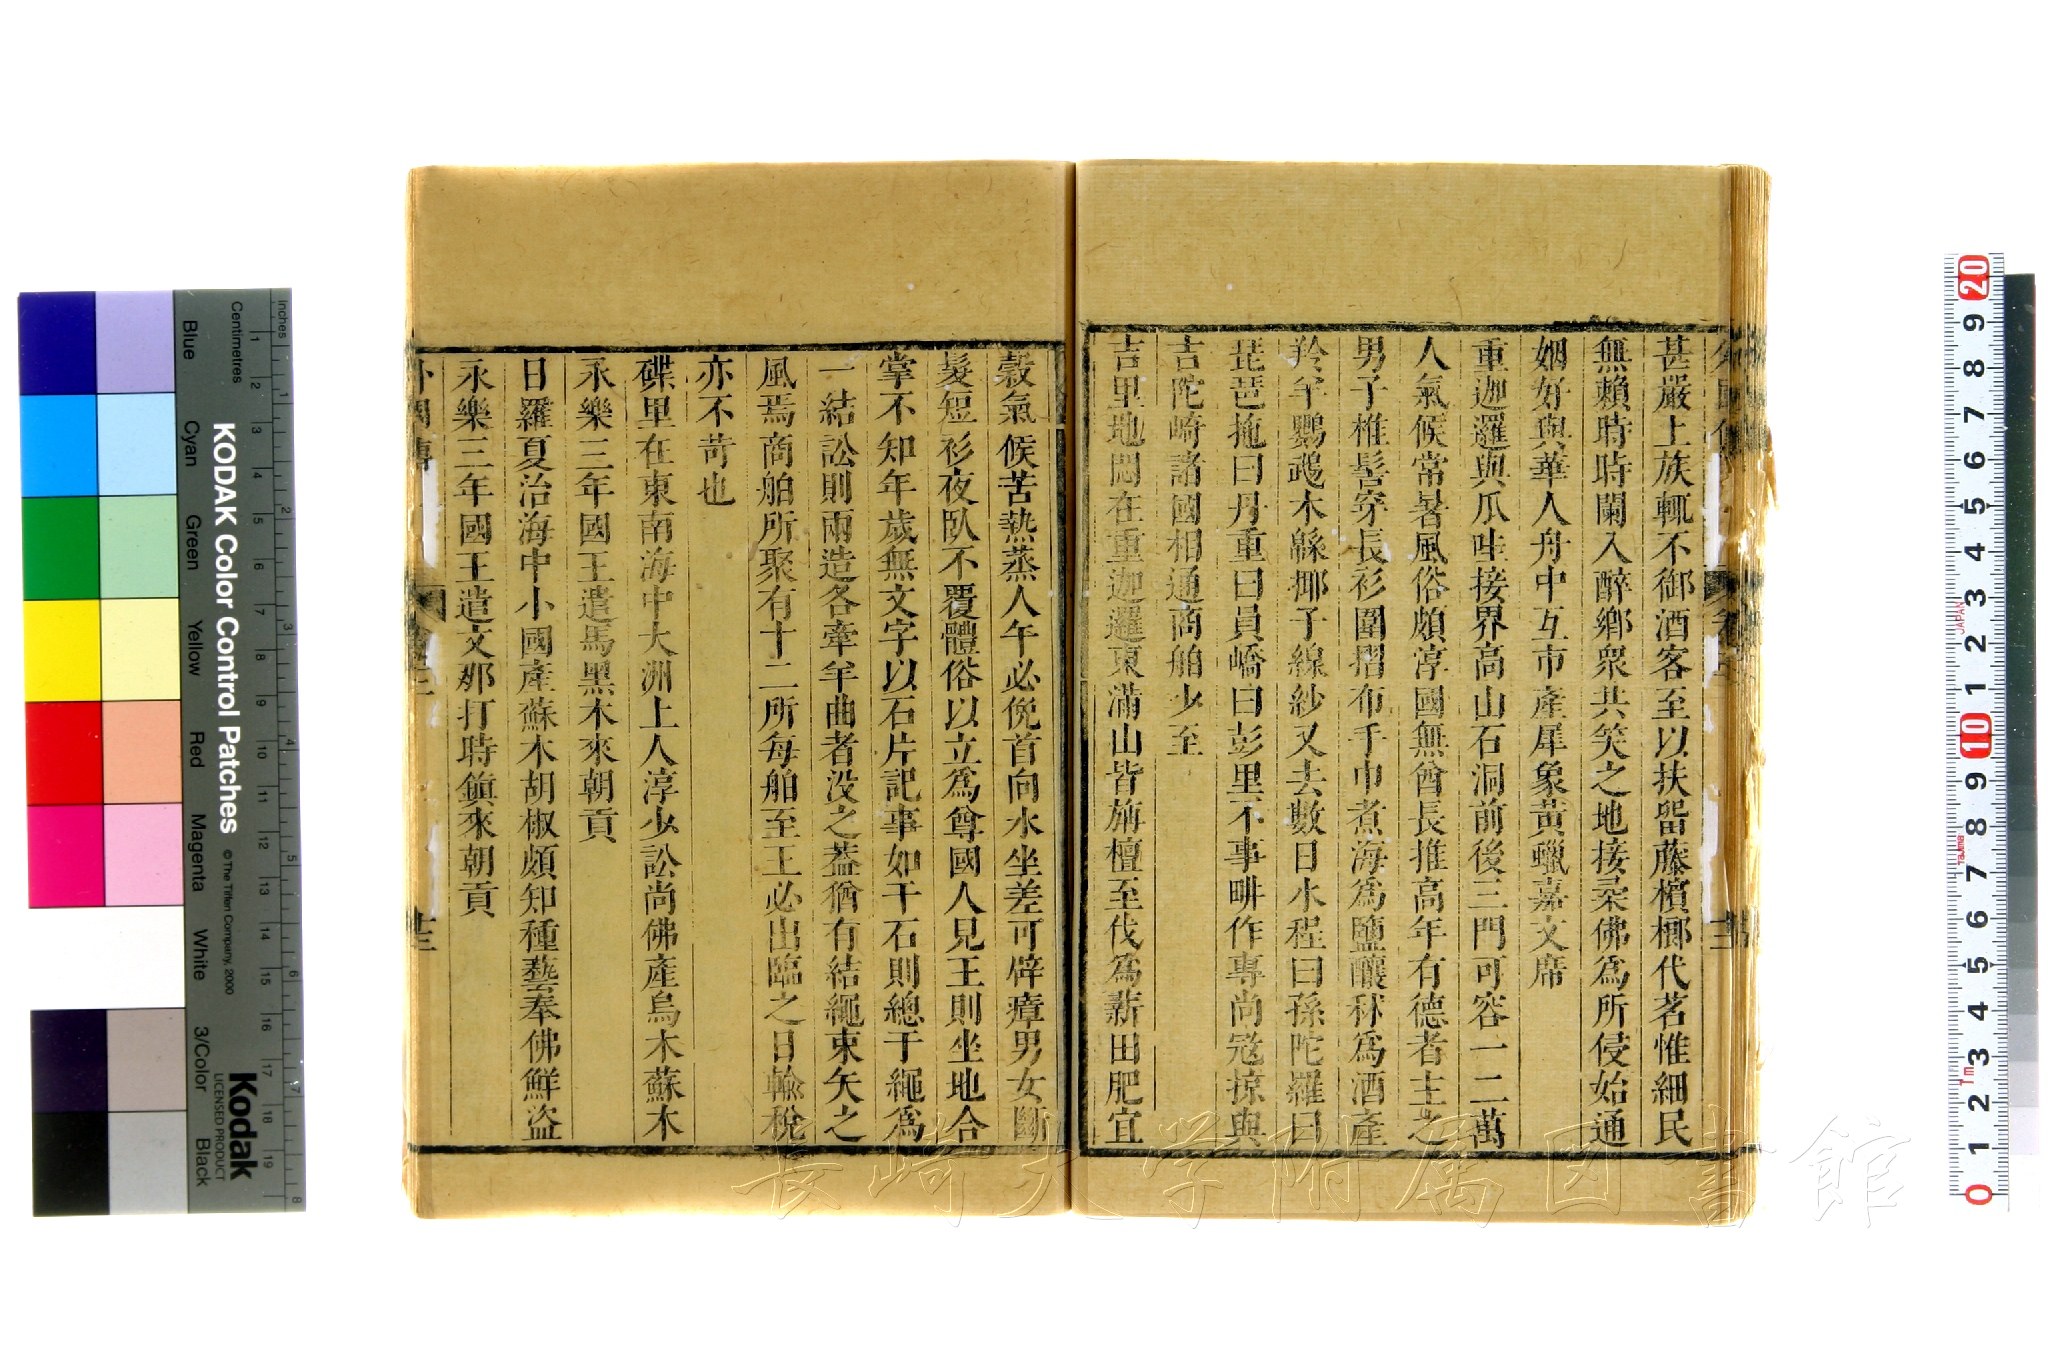 甚嚴上族輒不御酒客至以扶畱藤檳榔代茗惟細民
無賴時時闌入醉鄉衆共笑之地接彔佛爲所侵始通
姻好與華人舟中互市產犀象黃蠟嘉文席
重迦邏與爪哇接界高山石洞前後三門可容一二萬
人氣候常暑風俗頗淳國無酋長推高年有德者主之
男子椎髻穿長衫圍摺布手巾煮海爲鹽釀秫爲酒產
羚羊鸚鵡木緜椰子線紗又去數日水程曰孫陀羅曰
琵琶拖曰丹重曰員嶠曰彭里不事畊作專尚冦掠與
吉陀崎諸國相通商舶少至
吉里地悶在重迦邏東滿山皆旃檀至伐爲薪田肥宜
穀氣候苦熱蒸人午必俛首向水坐差可辟瘴男女斷
髮短衫夜臥不覆體俗以立爲尊國人見王則坐地合
掌不知年歲無文字以石片記事如干石則總于繩爲
一結訟則兩造各牽羊曲者没之葢猶有結繩束矢之
風焉商舶所聚有十二所每舶至王必出臨之日輸稅
亦不苛也
碟里在東南海中大洲上人淳少訟尚佛產烏木蘇木
永樂三年國王遣馬黑木來朝貢
日羅夏治海中小國產蘇木胡椒頗知種藝奉佛鮮盜
永樂三年國王遣文那打時鎮來朝貢
外國傳
長崎大学附属図書館
KODAK Color Control Patches
© The Tiffen Company, 2000
Kodak
LICENSED PRODUCT
Blue
Cyan
Green
Yellow
Red
Magenta
White
3/Color
Black
Centimetres
inches
1 2 3 4 5 6 7 8 9 10 11 12 13 14 15 16 17 18 19
1 2 3 4 5 6 7 8
20 9 8 7 6 5 4 3 2 1 10 9 8 7 6 5 4 3 2 1 0
JAPAN
Tajima
1m